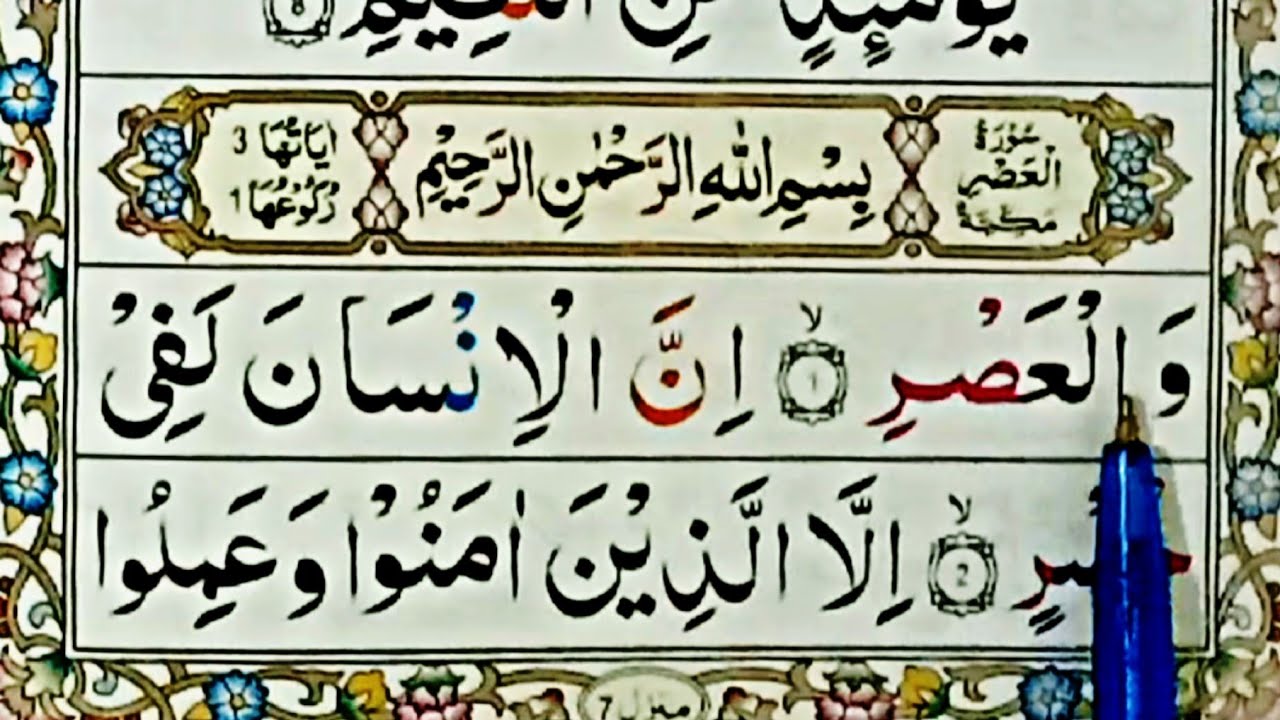 يَوْمَئِذٍ عَنِ النَّعِيْمِ 8
سُوْرَةُ الْعَصْرِ مَكِّيَّةٌ
بِسْمِ اللّٰهِ الرَّحْمٰنِ الرَّحِيْمِ
اٰيَاتُهَا 3
رُكُوْعُهَا 1
وَالْعَصْرِ ۙ 1 اِنَّ الْاِنْسَانَ لَفِىْ
خُسْرٍ ۙ 2 اِلَّا الَّذِيْنَ اٰمَنُوْا وَعَمِلُوا
منزل 7